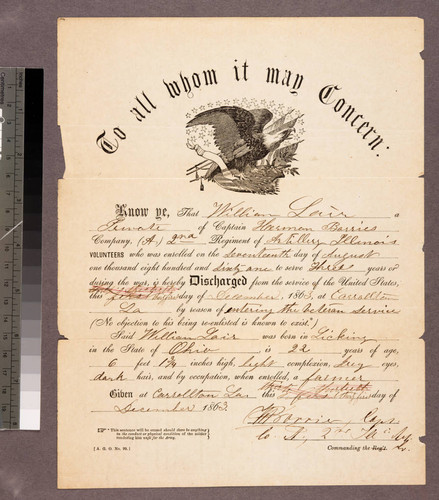 To all whom it may Concern:
Know ye, That William Lair a
Private of Captain Herman Borris
Company, (A.) 2nd Regiment of Artillery Illinois
VOLUNTEERS who was enrolled on the seventeenth day of August
one thousand eight hundred and sixty one to serve three years or
during the war, is hereby Discharged from the service of the United States,
this day of December, 1863, at Carrollton
La by reason of entering the Veteran service
(No objection to his being re-enlisted is known to exist.)
Said William Lair was born in Licking
in the State of Ohio is 22 years of age,
6 feet inches high, light complexion, Grey eyes,
dark hair, and by occupation, when enrolled, a farmer
Given at Carrollton La. this day of
December 1863.
H Borris Capt
Co A, 2nd Ill
Commanding the Reg't.
This sentence will be erased should there be anything
in the conduct or physical condition of the soldier
rendering him unfit for the Army.
[A. G. O. No. 99.]